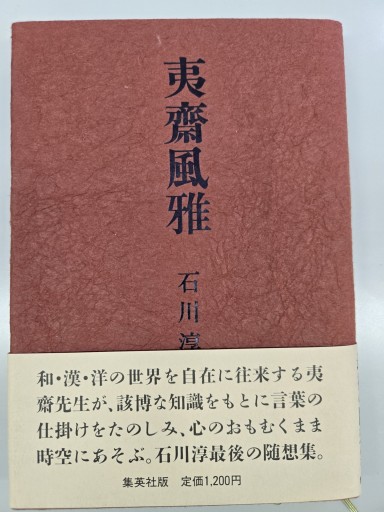 夷齋風雅
石川淳
和・漢・洋の世界を自在に往来する夷
齋先生が、該博な知識をもとに言葉の
仕掛けをたのしみ、心のおもむくまま
時空にあそぶ。石川淳最後の随想集。
集英社版 定価1,200円